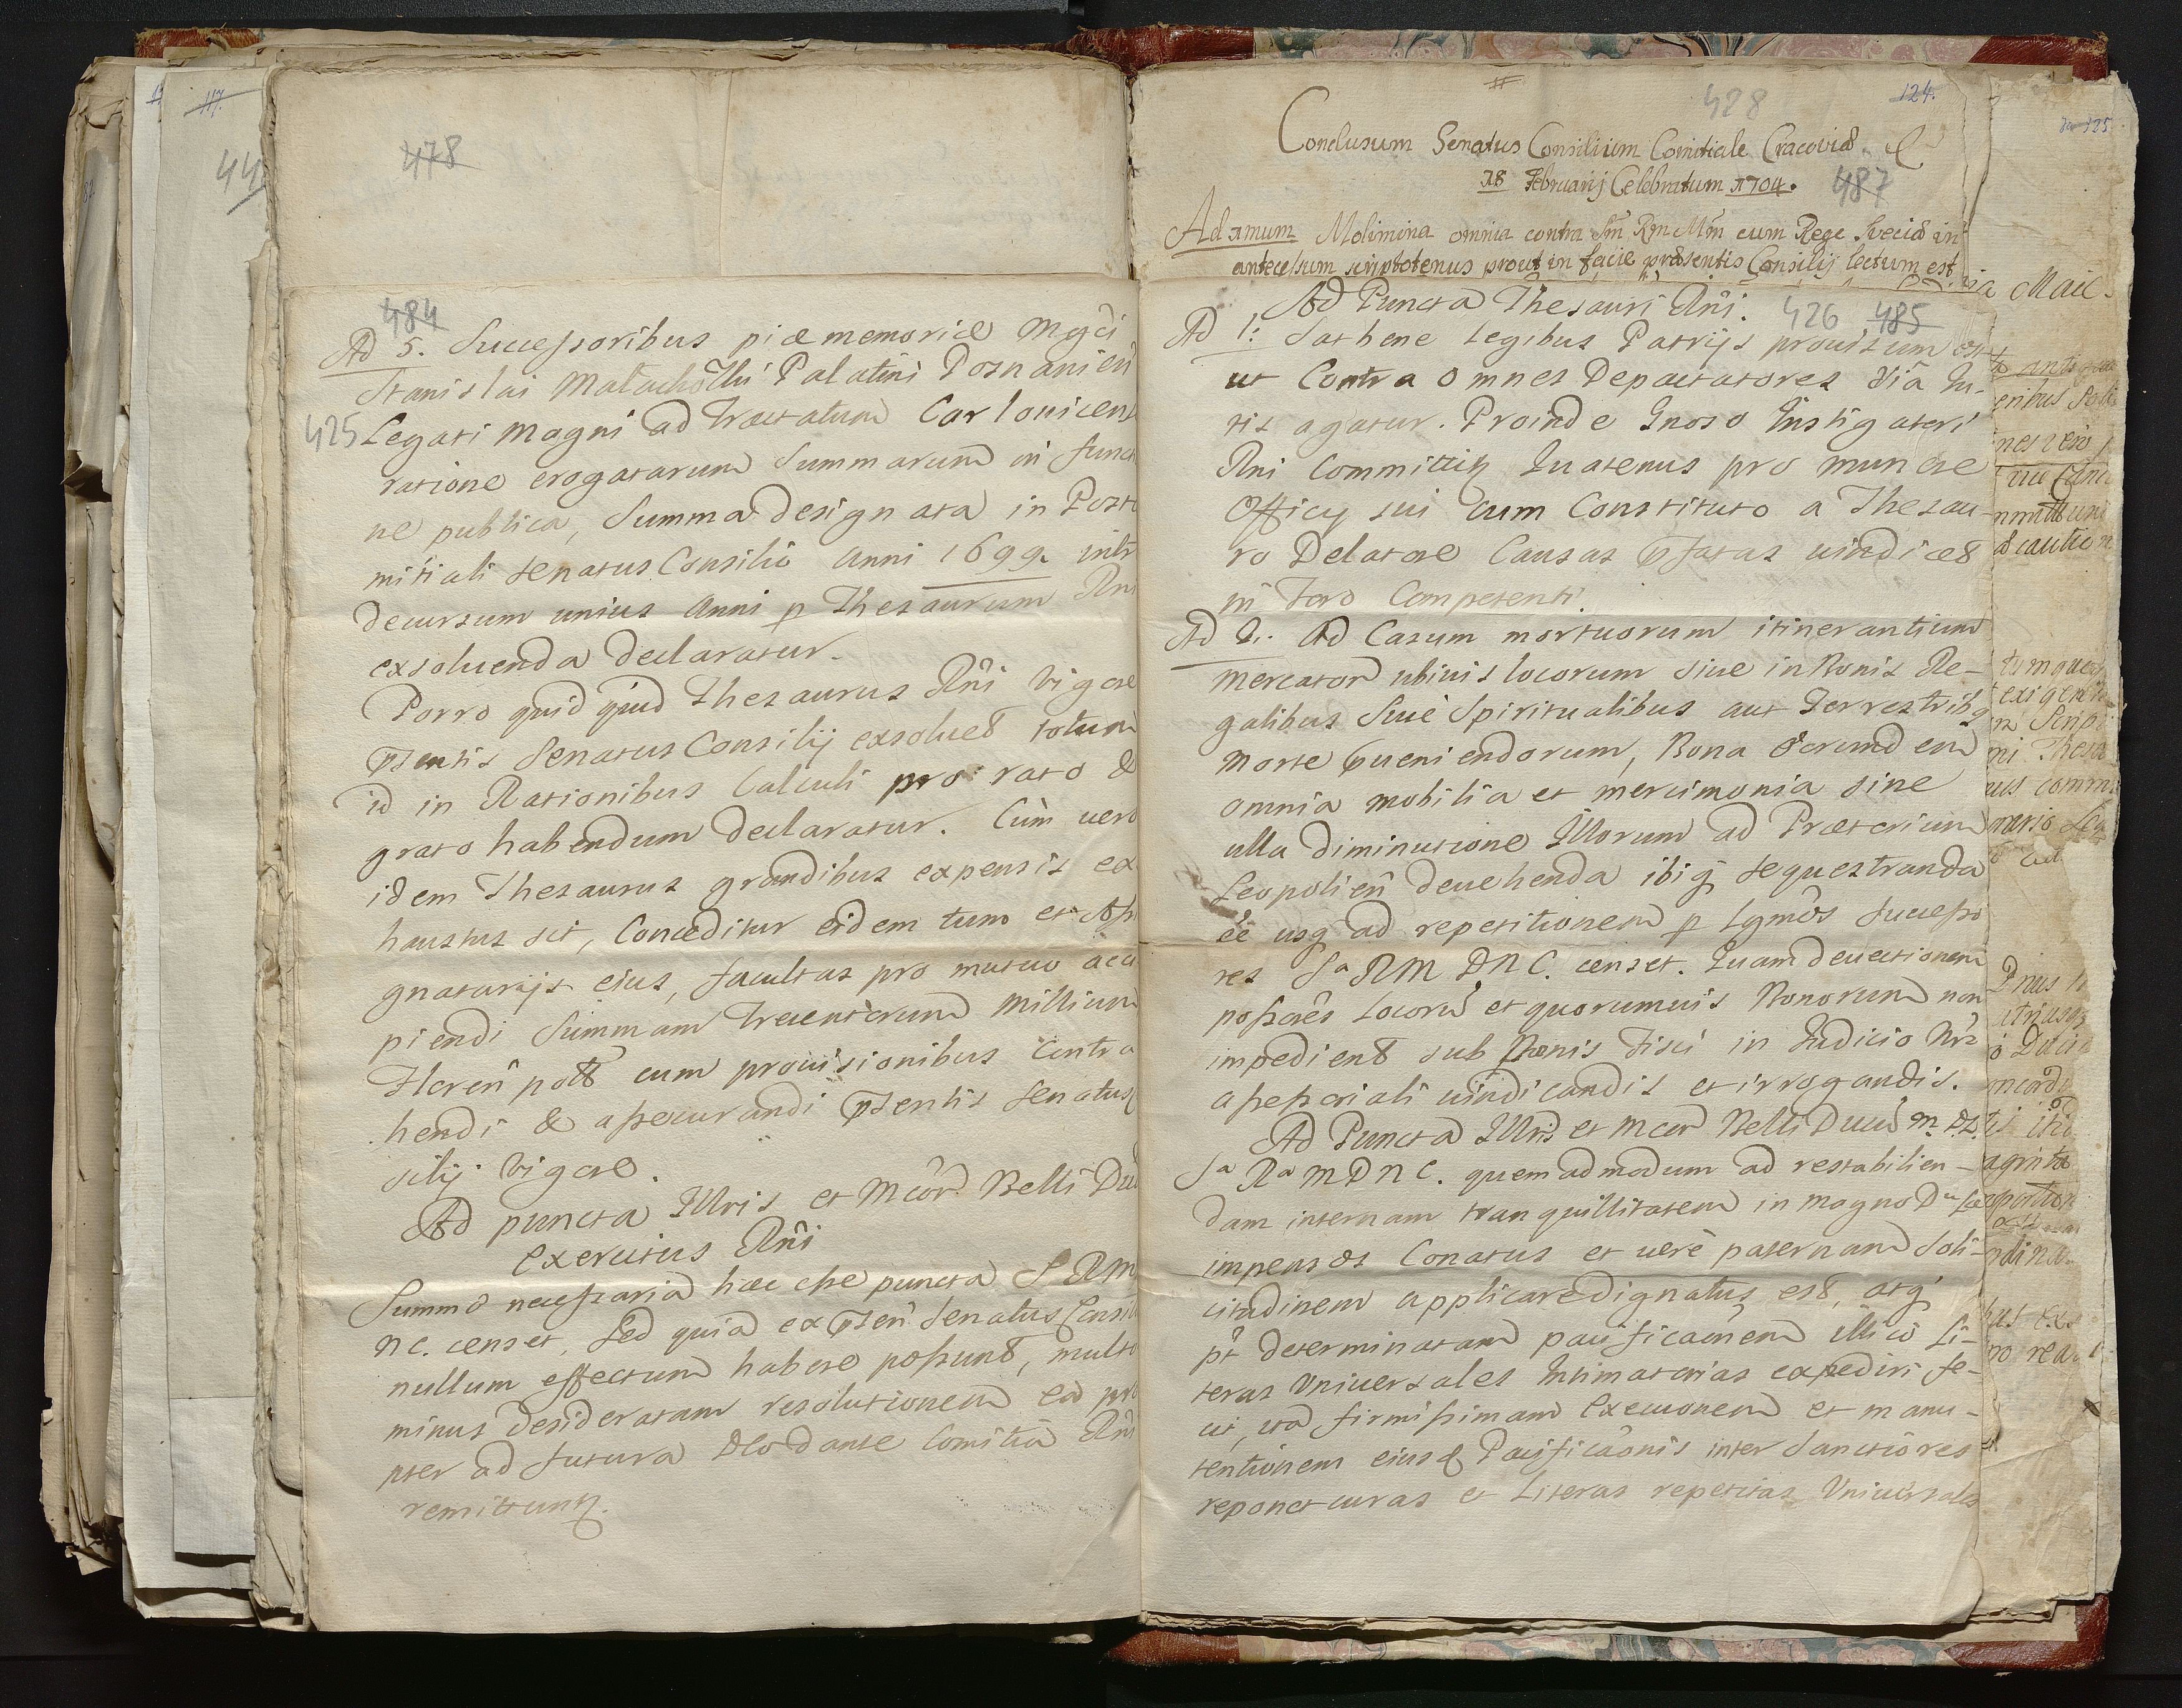 117.
44
478
484
Ad 5. Successoribus piæ memoriæ Mgci
Stanislai Małachowski Palatini Posnanien
425 Legati Magni ad Tractatum Carlouicens
ratione erogatarum Summarum in func
ne publica, Summa designata in Post
mitiali Senatus Consilio Anni 1699. intr
decursum unius Anni p Thesaurum Rni
exsoluenda declaratur.
Porro quid quid Thesaurus Rni vigore
Psentis Senatus Consilij exsoluet totum
id in Rationibus Calculi pro rato &
grato habendum declaratur. Cum uero
idem Thesaurus grandibus expensis ex
haustus sit, Conceditur eidem tum et Assi
gnatarijs eius, facultas pro mutuo acci
piendi Summam Trecentorum Millium
Floren pott cum prouisionibus Contra
hendi & assecurandi Psentis Senatus
silij vigore.
Ad puncta Illris et Mcor Belli Du
Exercitus Rni
Summo necessaria hæc esse puncta S R M
N C. censet, sed quia ex Psen Senatus Consil
nullum effectum habere possunt, multo
minus desideratam resolutionem ea pro
pter ad futura Deo dante Comitia Rni
remittunt.
428
124.
Conclusum Senatus Consilium Comitiale Cracoviæ
18 Februarij Celebratum 1704.
487
Ad 1mum Molimina omnia contra Sm Rm Mm cum Rege Sveciæ in
antecessum scriptotenus prout in facie præsentis Consilij lectum est
Ad Puncta Thesauri Rni.
426 485
Ad 1. Sat bene Legibus Patrijs prouisum est
ut Contra omnes Depactatores via Iu-
ris agatur. Proinde Gnoso Instigatori
Rni Committit Quatenus pro munere
Officij sui cum Constituto a Thesau-
ro Delatore Causas Pfatas uindicet
in Foro Competenti.
Ad 2. Ad Casum mortuorum itinerantium
mercator ubiuis locorum siue in Bonis Re-
galibus Siue Spiritualibus aut Terrestribq
morte Pueniendorum, Bona eorundem
omnia mobilia et mercimonia sine
ulla diminutione Illorum ad Prætorium
Leopolien deuehenda ibiq sequestranda
ee usq ad repetitionem p Lgmos Successo
res Sa R M D N C. censet. Quam deuectionem
possores Locoru et quorumuis Bonorum non
impedient sub Poenis Fisci in Iudicio Nr
assessoriali uindicandis et irrogandis.
Ad Puncta Illris et Mcor Belli Ducu M. D. L.
Sa Ra M D N C. quemadmodum ad restabilien-
dam internam tranquillitatem in Magno Du
impensos Conatus et uere paternam Soli-
citudinem applicare dignatus est, atq
pt determinatam pacificaonem illico Li-
teras Vniuersales Intimatorias expediri fe-
cit, ita firmissimam Execuonem et manu-
tentionem eiusd Pacificaonis inter Sanctiores
reponet curas et Literas repetitas Vniuersales
125
Maie.